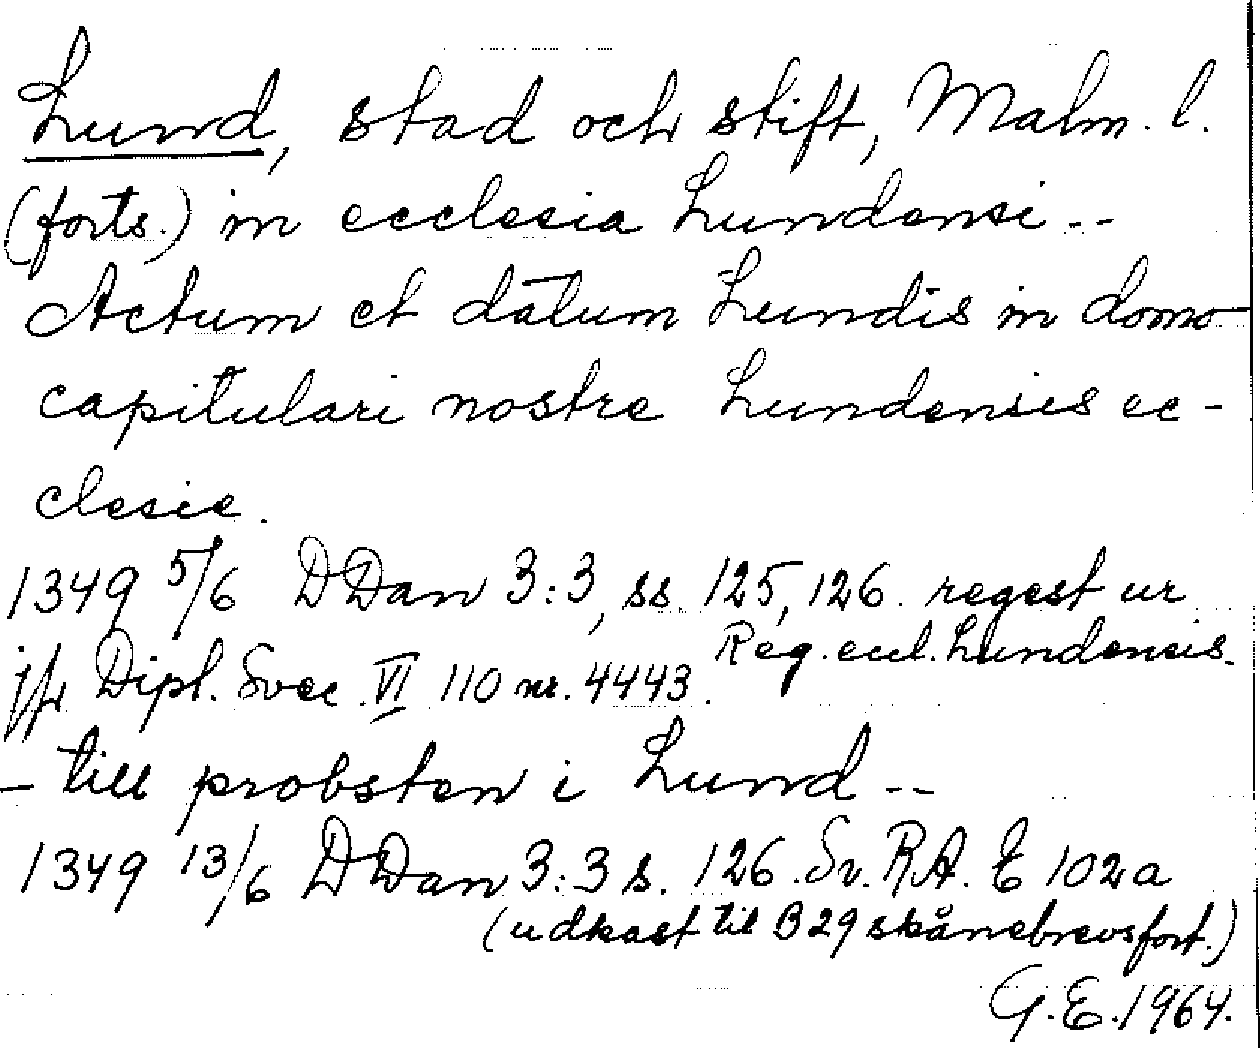 Lund, stad och stift, Malm. l.
(forts.) in ecclesia Lundensi --
Actum et datum Lundis in domo
capitulari nostre Lundensis ec-
clesie.
1349 5/6 DDan 3:3, ss. 125, 126. regest ur
Reg. eccl. Lundensis.
jfr Dipl. Svec. VI 110 nr. 4443.
- till probsten i Lund --
1349 13/6 DDan 3:3 s. 126. Sv. R.A. E 102a
(udkast til B 29 skånebrevsfort.)
G.E. 1964.